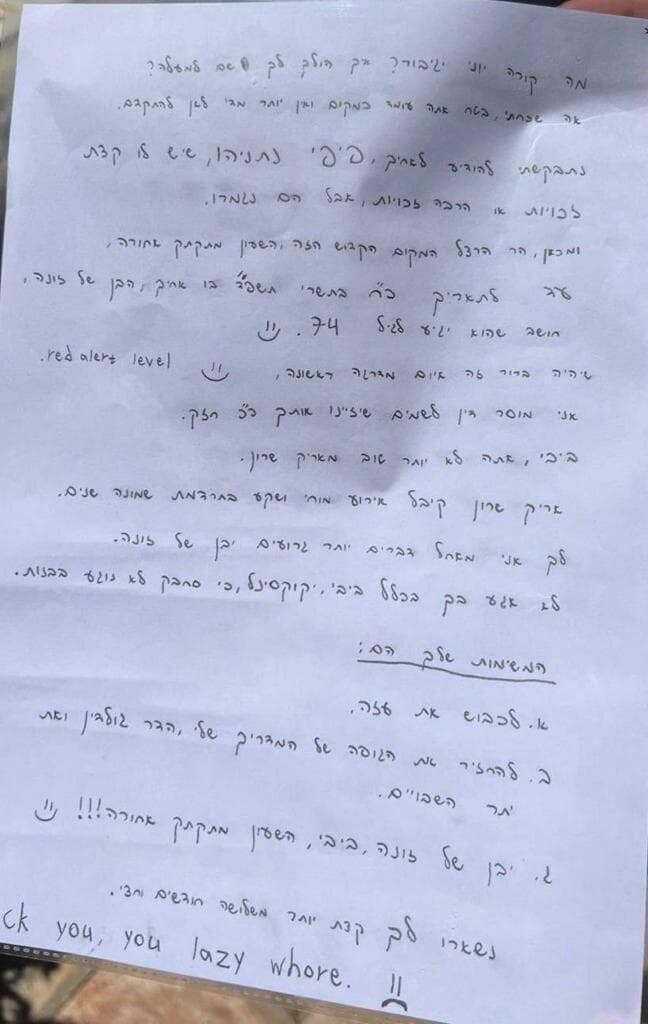 מה קורה יוני יגיבור? איך הולך לך שם למעלה?
אה שכחתי, בטח אתה עומד במקום ואין יותר מדי לאן להתקדם.
נתבקשתי להודיע לאחיך, פיפי נתניהו, שיש לו קצת
זכויות או הרבה זכויות, אבל הם נגמרו.
ומכאן, הר הרצל המקום הקדוש הזה, השעון מתקתק אחורה,
עד לתאריך כ״ח בתשרי תשפ״ד בו אחיך, הבן של זונה,
חושב שהוא יגיע לגיל 74. =)
שיהיה ברור זה איום מדרגה ראשונה, =) red alert level.
אני מוסר דין לשמים שיזיינו אותך כ״כ חזק.
ביבי, אתה לא יותר טוב מאריק שרון.
אריק שרון קיבל אירוע מוחי ושקע בתרדמת שמונה שנים.
לך אני מאחל דברים יותר גרועים יבן של זונה.
לא אגע בך בכלל ביבי, יקוקסינל, כי סחבק לא נוגע בבנות.
המשימות שלך הם:
א. לכבוש את עזה.
ב. להחזיר את הגופה של המדריך שלי, הדר גולדין ואת
יתר השבויים.
ג. יבן של זונה, ביבי, השעון מתקתק אחורה!!! =)
נשארו לך קצת יותר משלושה חודשים וחצי.
ck you, you lazy whore. =(